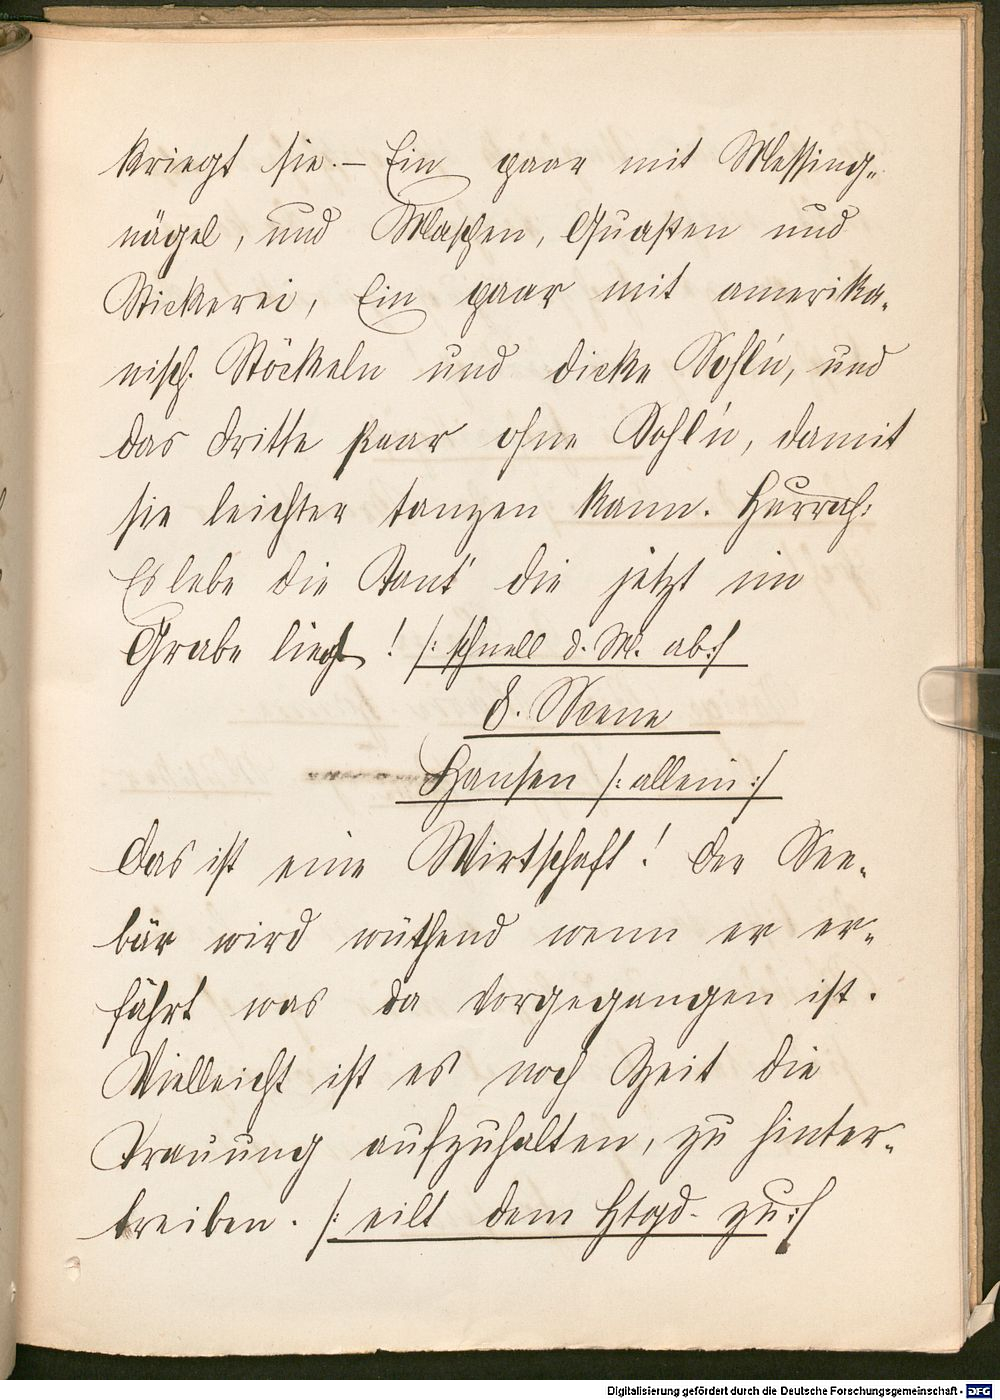 kriegt sie. — Ein paar mit Messing-
nägel, und Maschen, Quasten und
Stickerei, Ein paar mit amerika-
nisch. Stöckeln und dicke Sohl'n, und
das dritte paar ohne Sohl'n, damit
sie leichter tanzen kann. Hurrah!
Es lebe die Tant' die jetzt im
Grabe liegt! /: schnell d. M. ab :/
8. Scene
Hansen /: allein :/
Das ist eine Wirtschaft! Der See-
bär wird wüthend wenn er er-
fährt was da vorgegangen ist.
Vielleicht ist es noch Zeit die
Trauung aufzuhalten, zu hinter-
treiben. /: eilt dem Htgd. zu :/
Digitalisierung gefördert durch die Deutsche Forschungsgemeinschaft - DFG